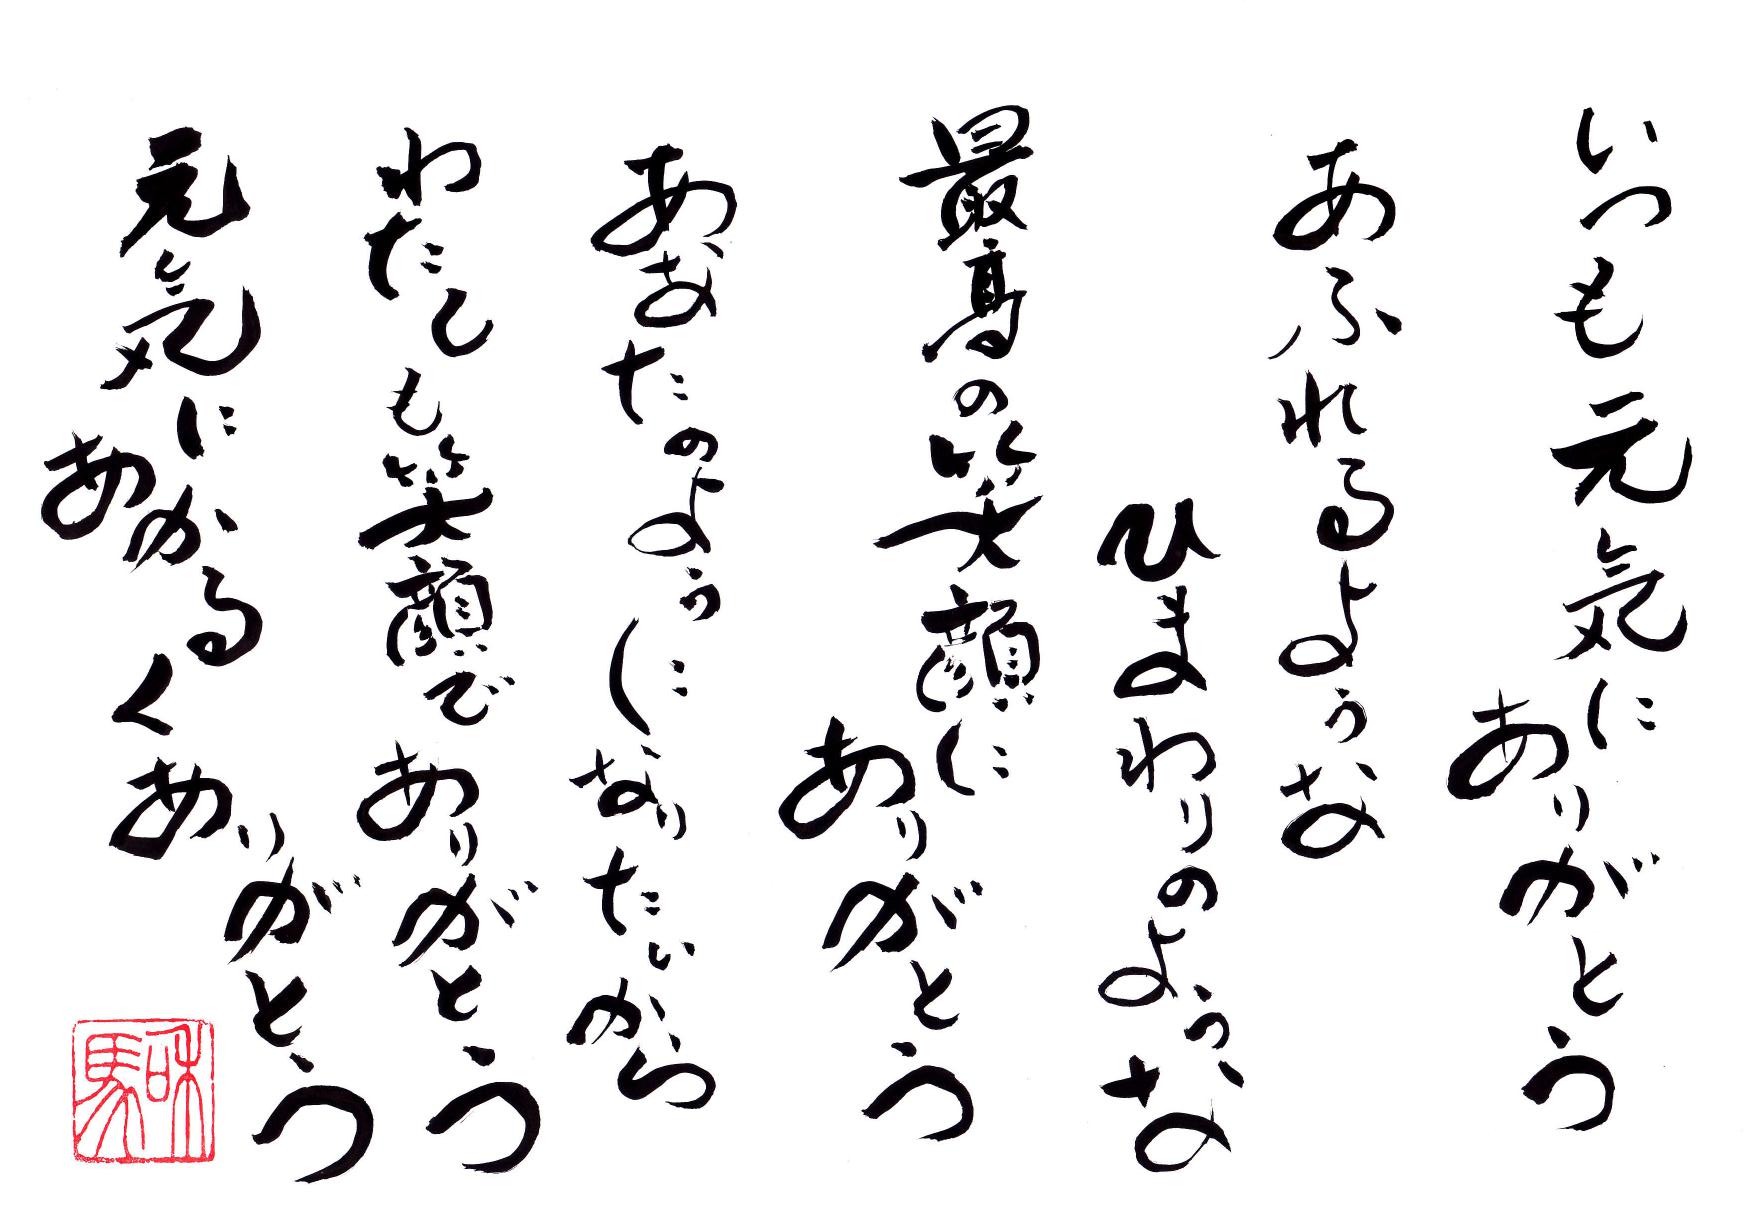 いつも元気にありがとう
あふれるような
ひまわりのような
最高の笑顔にありがとう
あなたのようになりたいから
わたしも笑顔でありがとう
元気にあかるくありがとう
和馬